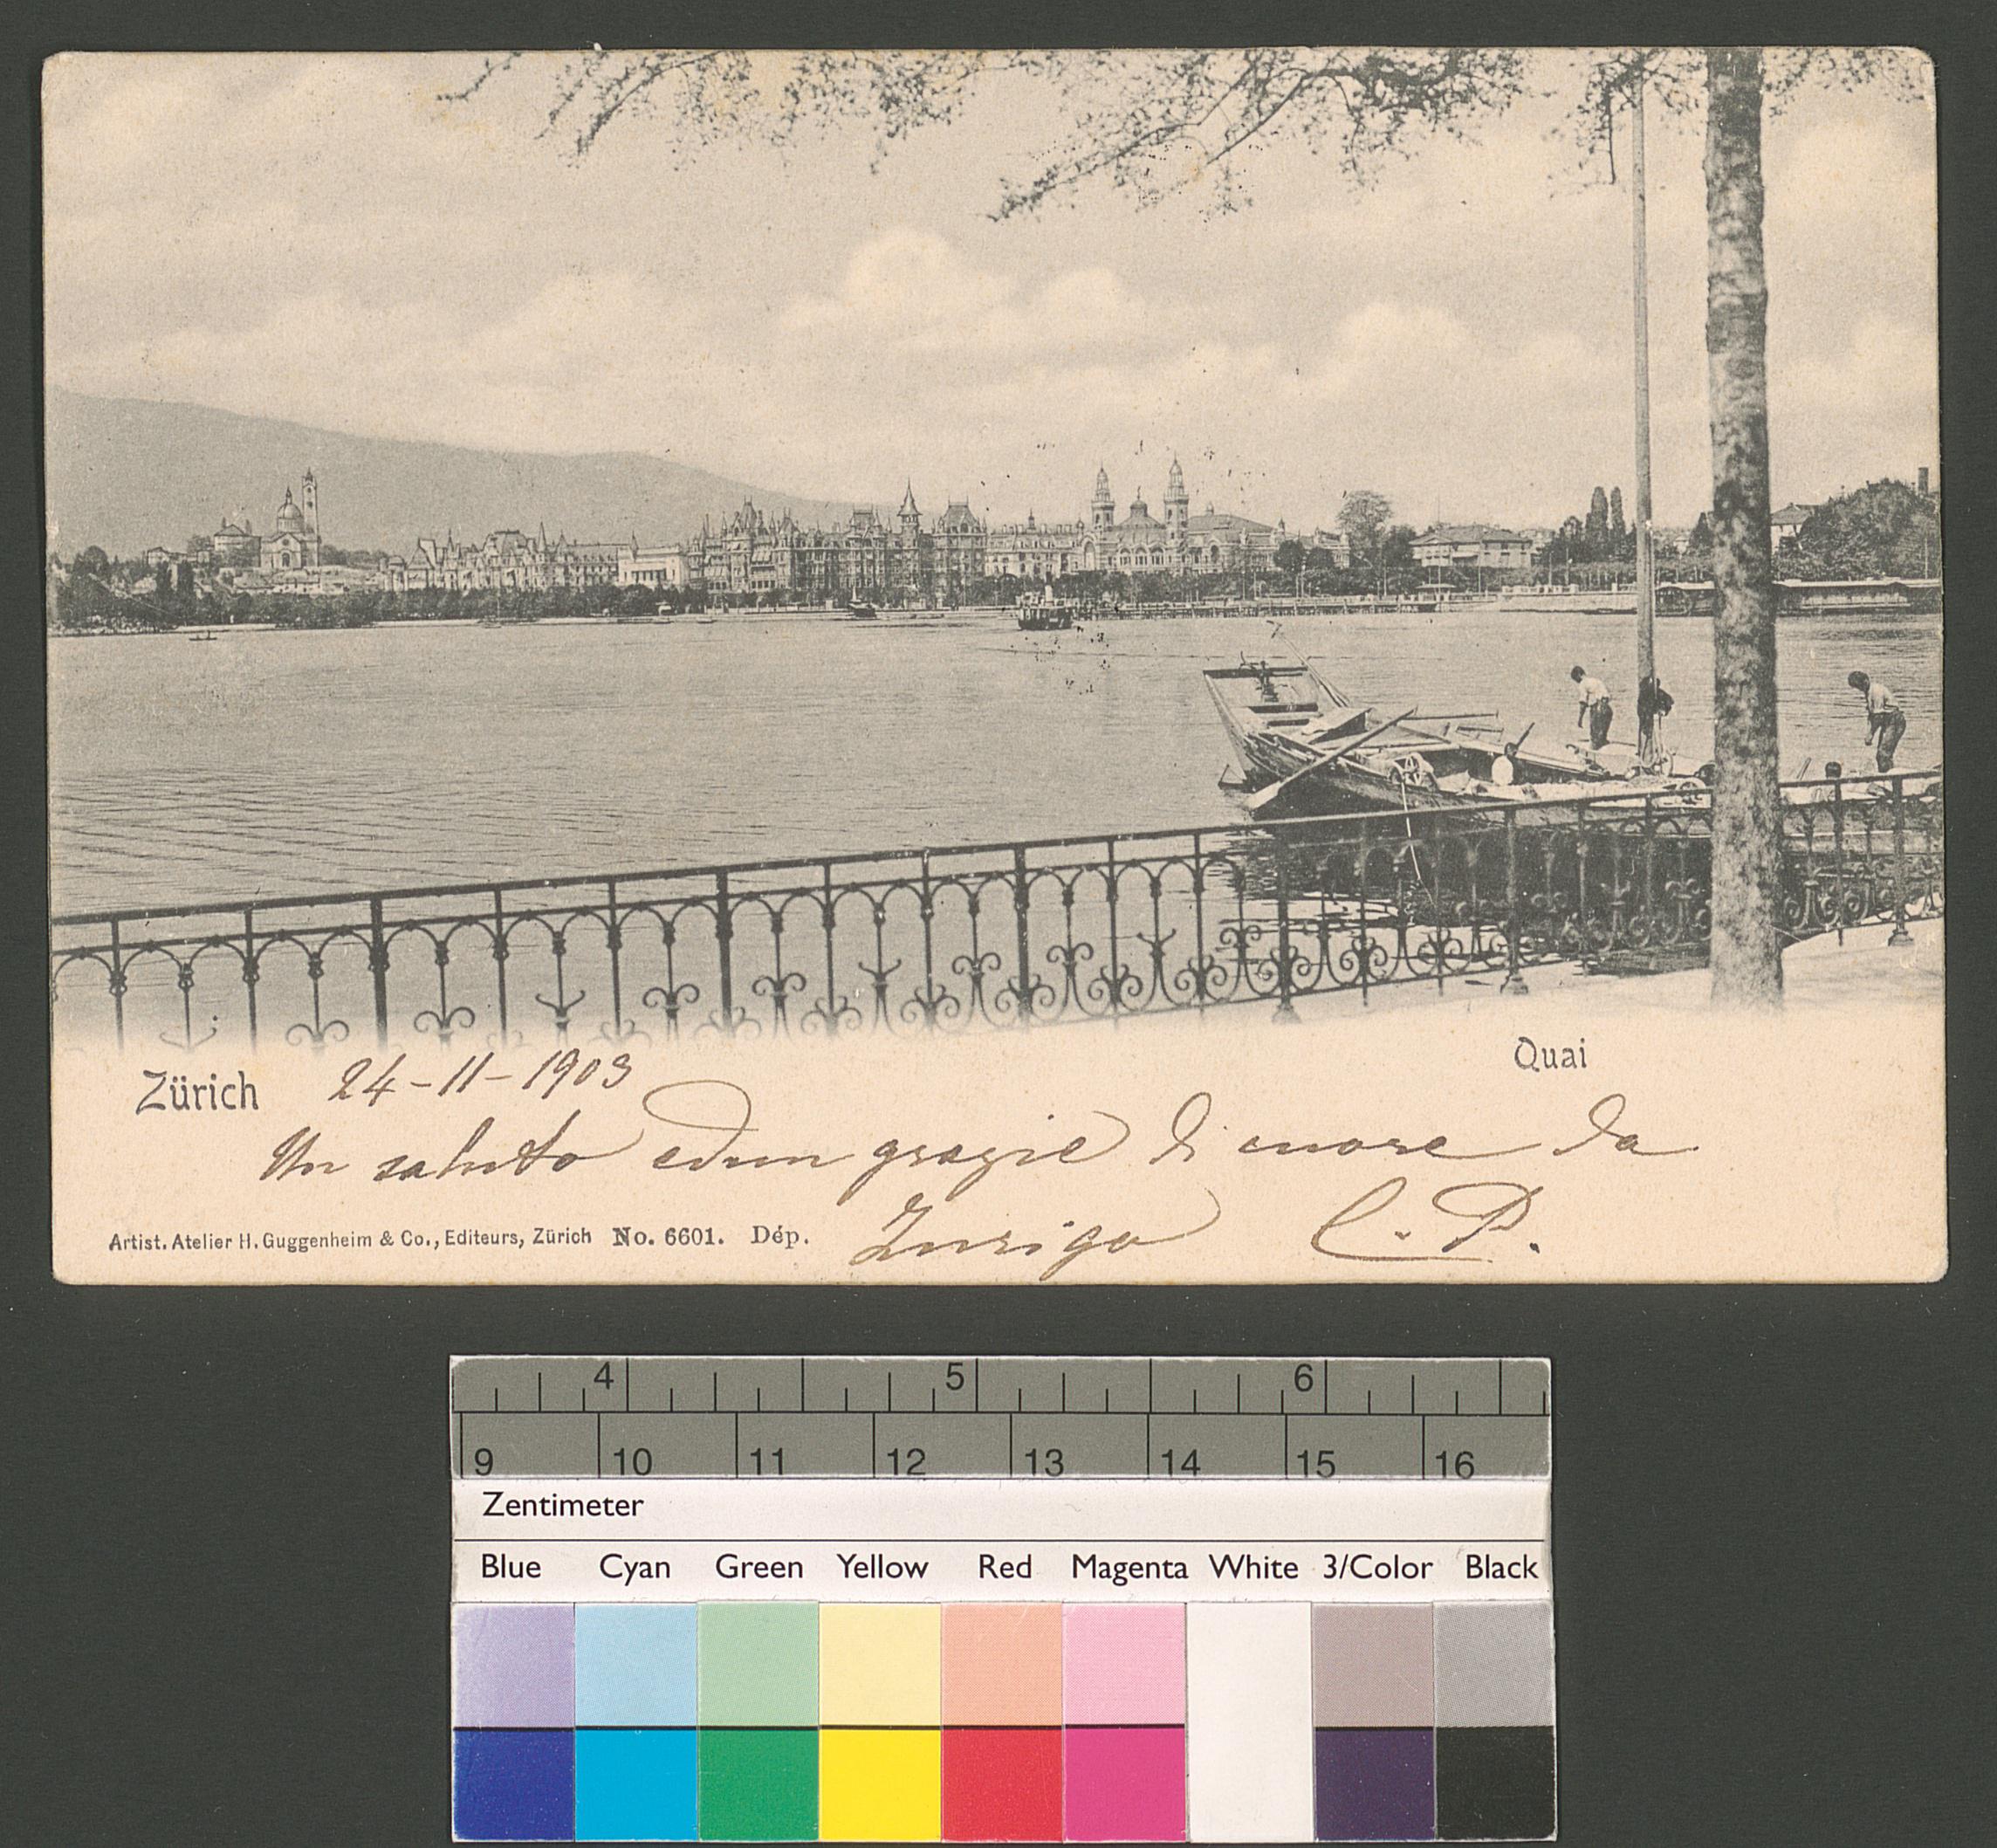 Quai
Zürich 24-11-1903
Un saluto ed un grazie di cuore da
Zurigo C. P.
Artist. Atelier H. Guggenheim & Co., Editeurs, Zürich No. 6601. Dép.
4 5 6
9 10 11 12 13 14 15 16
Zentimeter
Blue Cyan Green Yellow Red Magenta White 3/Color Black